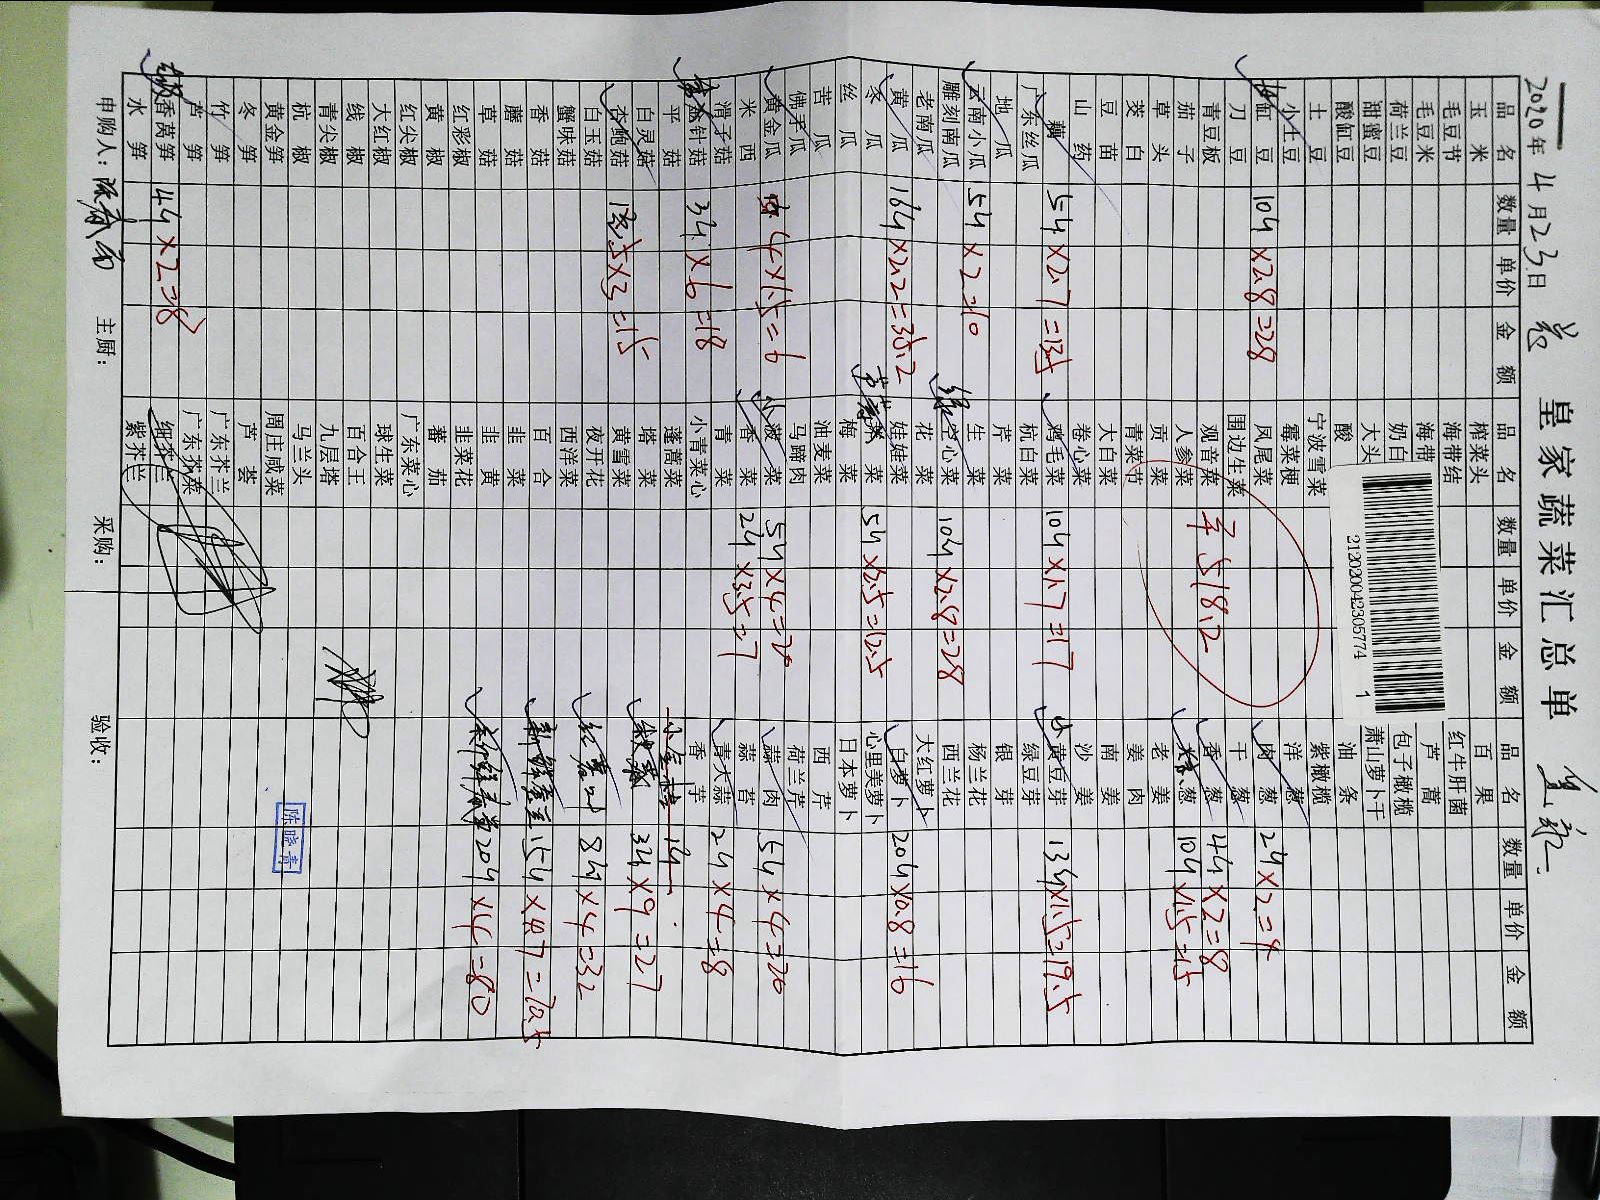 皇家蔬菜汇总单
2020年4月23日
品名 数量 单价 金额 品名 数量 单价 金额 品名 数量 单价 金额
玉米 榨菜头 百果
毛豆节 海带结 红牛肝菌
毛豆米 海带 芦蒿
荷兰豆 奶白 包子橄榄
甜蜜豆 大头 萧山萝卜干
酸缸豆 酸 油条
土豆 宁波雪菜 紫橄榄
小土豆 霉菜梗 洋葱
缸豆 10斤×2.8=28 凤尾菜 肉葱 2斤×2=4
刀豆 围边生菜 干葱
青豆板 观音菜 香葱 4斤×2=8
茄子 人参菜 葱 10斤×1.5=15
518.2
草头 贡菜 老姜
茭白 青菜节 姜肉
豆苗 大白菜 南姜
山药 卷心菜 沙姜
藕 5斤×2.7=13.5 鸡毛菜 10斤×1.7=17 小黄豆芽 13斤×1.5=19.5
广东丝瓜 杭白菜 绿豆芽
地瓜 芹菜 银芽
云南小瓜 5斤×2=10 生菜 杨兰花
雕刻南瓜 空心菜 10斤×2.8=28 西兰花
老南瓜 花菜 大红萝卜
黄瓜 16斤×2.2=35.2 娃娃菜 白萝卜 20斤×0.8=16
冬瓜 菜 5斤×2.5=12.5 心里美萝卜
丝瓜 梅菜 日本萝卜
苦瓜 油麦菜 西芹
佛手瓜 马蹄肉 荷兰芹
黄金瓜 4×1.5=6 小菠菜 5斤×4=20 蒜肉 5斤×4=20
米西 香菜 2斤×3.5=7 蒜苔
滑子菇 青菜 青大蒜 2斤×4=8
金针菇 3斤×6=18 小青菜心 香芋
平菇 蓬蒿菜 1斤
白灵菇 塔菜 3斤×9=27
杏鲍菇 5×3=15 黄雪菜
白玉菇 夜开花 8斤×4=32
蟹味菇 西洋菜
香菇 百合 新鲜 15斤×4.7=70.5
蘑菇 韭菜
草菇 韭黄 20斤×4=80
红彩椒 韭菜花
黄椒 蕃茄
红尖椒 广东菜心
大红椒 球生菜
线椒 百合王
青尖椒 九层塔
杭椒 马兰头
黄金笋 周庄咸菜
冬笋 芦荟
竹笋 广东芥兰
芦笋 广东芥菜
香莴笋 4斤×2=8 细芥兰
水笋 紫芥兰
申购人： 主厨： 采购： 验收：
212020042305774 1
陈晓青